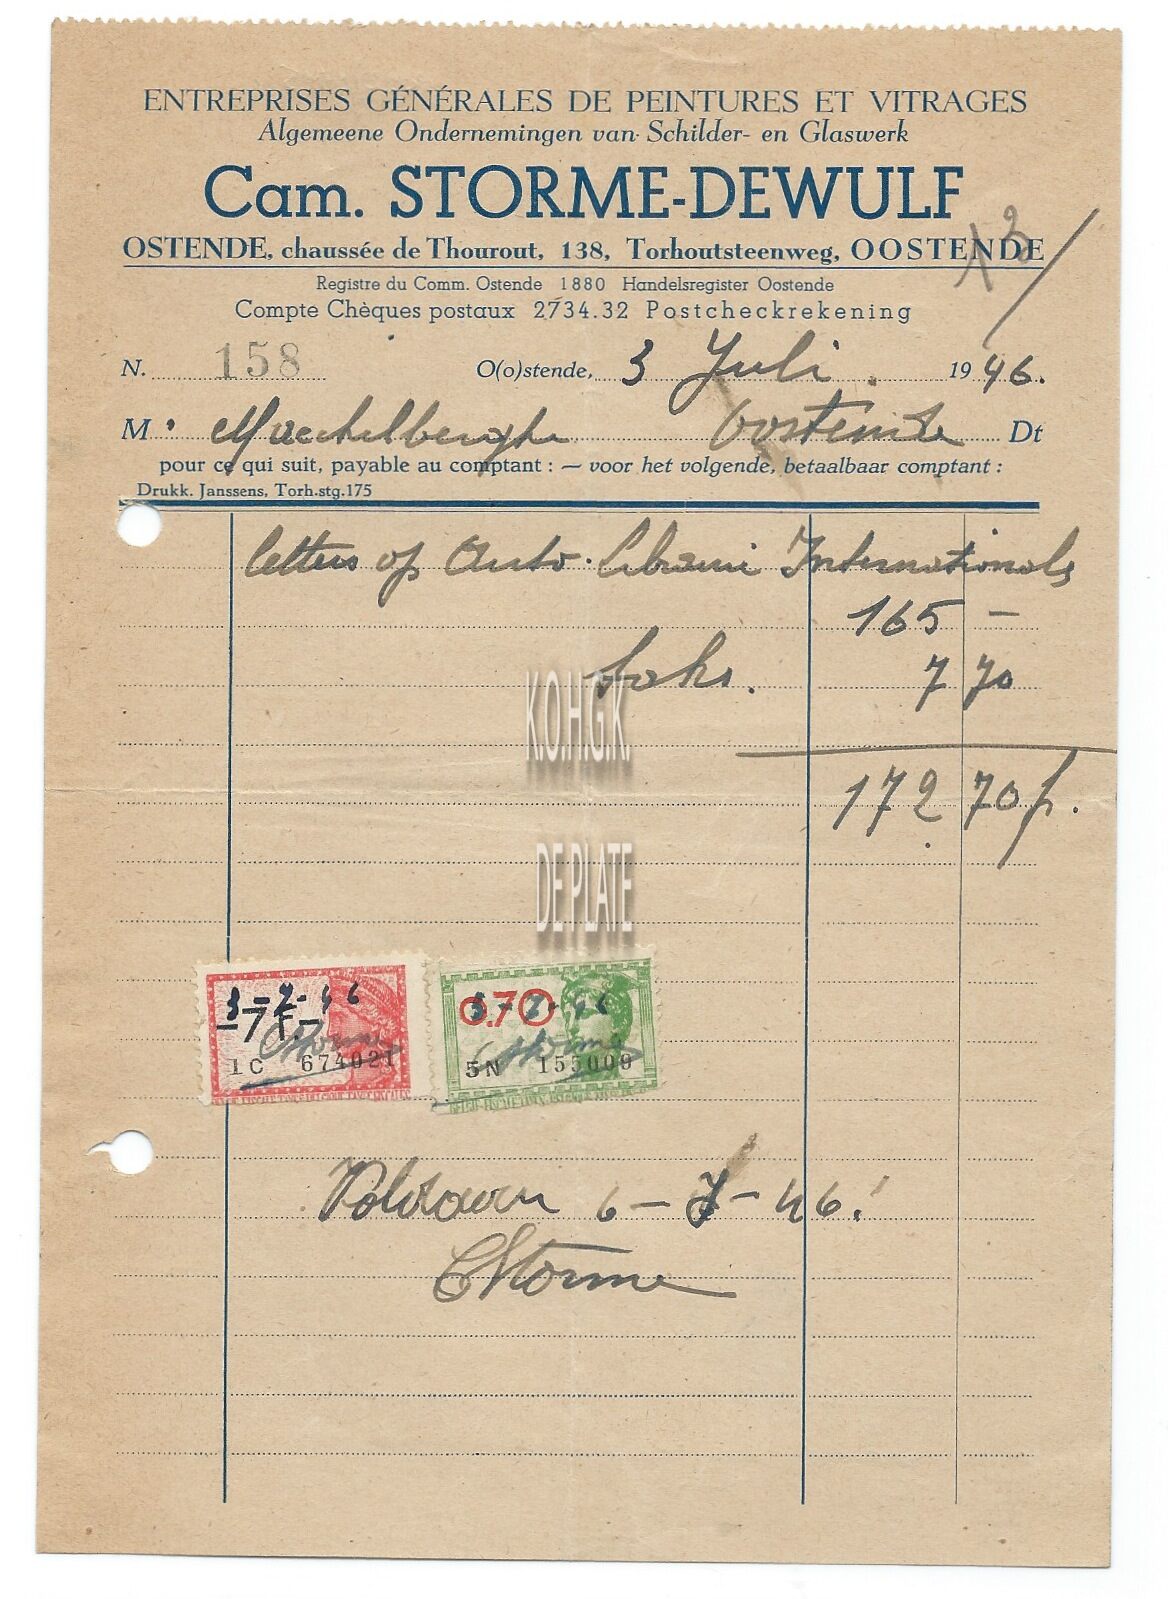 ENTREPRISES GÉNÉRALES DE PEINTURES ET VITRAGES
Algemeene Ondernemingen van Schilder- en Glaswerk
Cam. STORME-DEWULF
OSTENDE, chaussée de Thourout, 138, Torhoutsteenweg, OOSTENDE
13/
Registre du Comm. Ostende 1880 Handelsregister Oostende
Compte Chèques postaux 2734.32 Postcheckrekening
N. 158 O(o)stende, 3 Juli 1946.
M. Maechelberghe Oostende Dt
pour ce qui suit, payable au comptant : — voor het volgende, betaalbaar comptant :
Drukk. Janssens, Torh.stg.175
letters op Auto. Librairie Internationale
165 —
taks. 7 70
K.O.H.G.K.
172 70 f.
DE PLATE
3-7-46 3-7-46
7 F. 0.70
CStorme CStorme
1C 674021 5N 155009
Voldaan 6-7-46!
CStorme